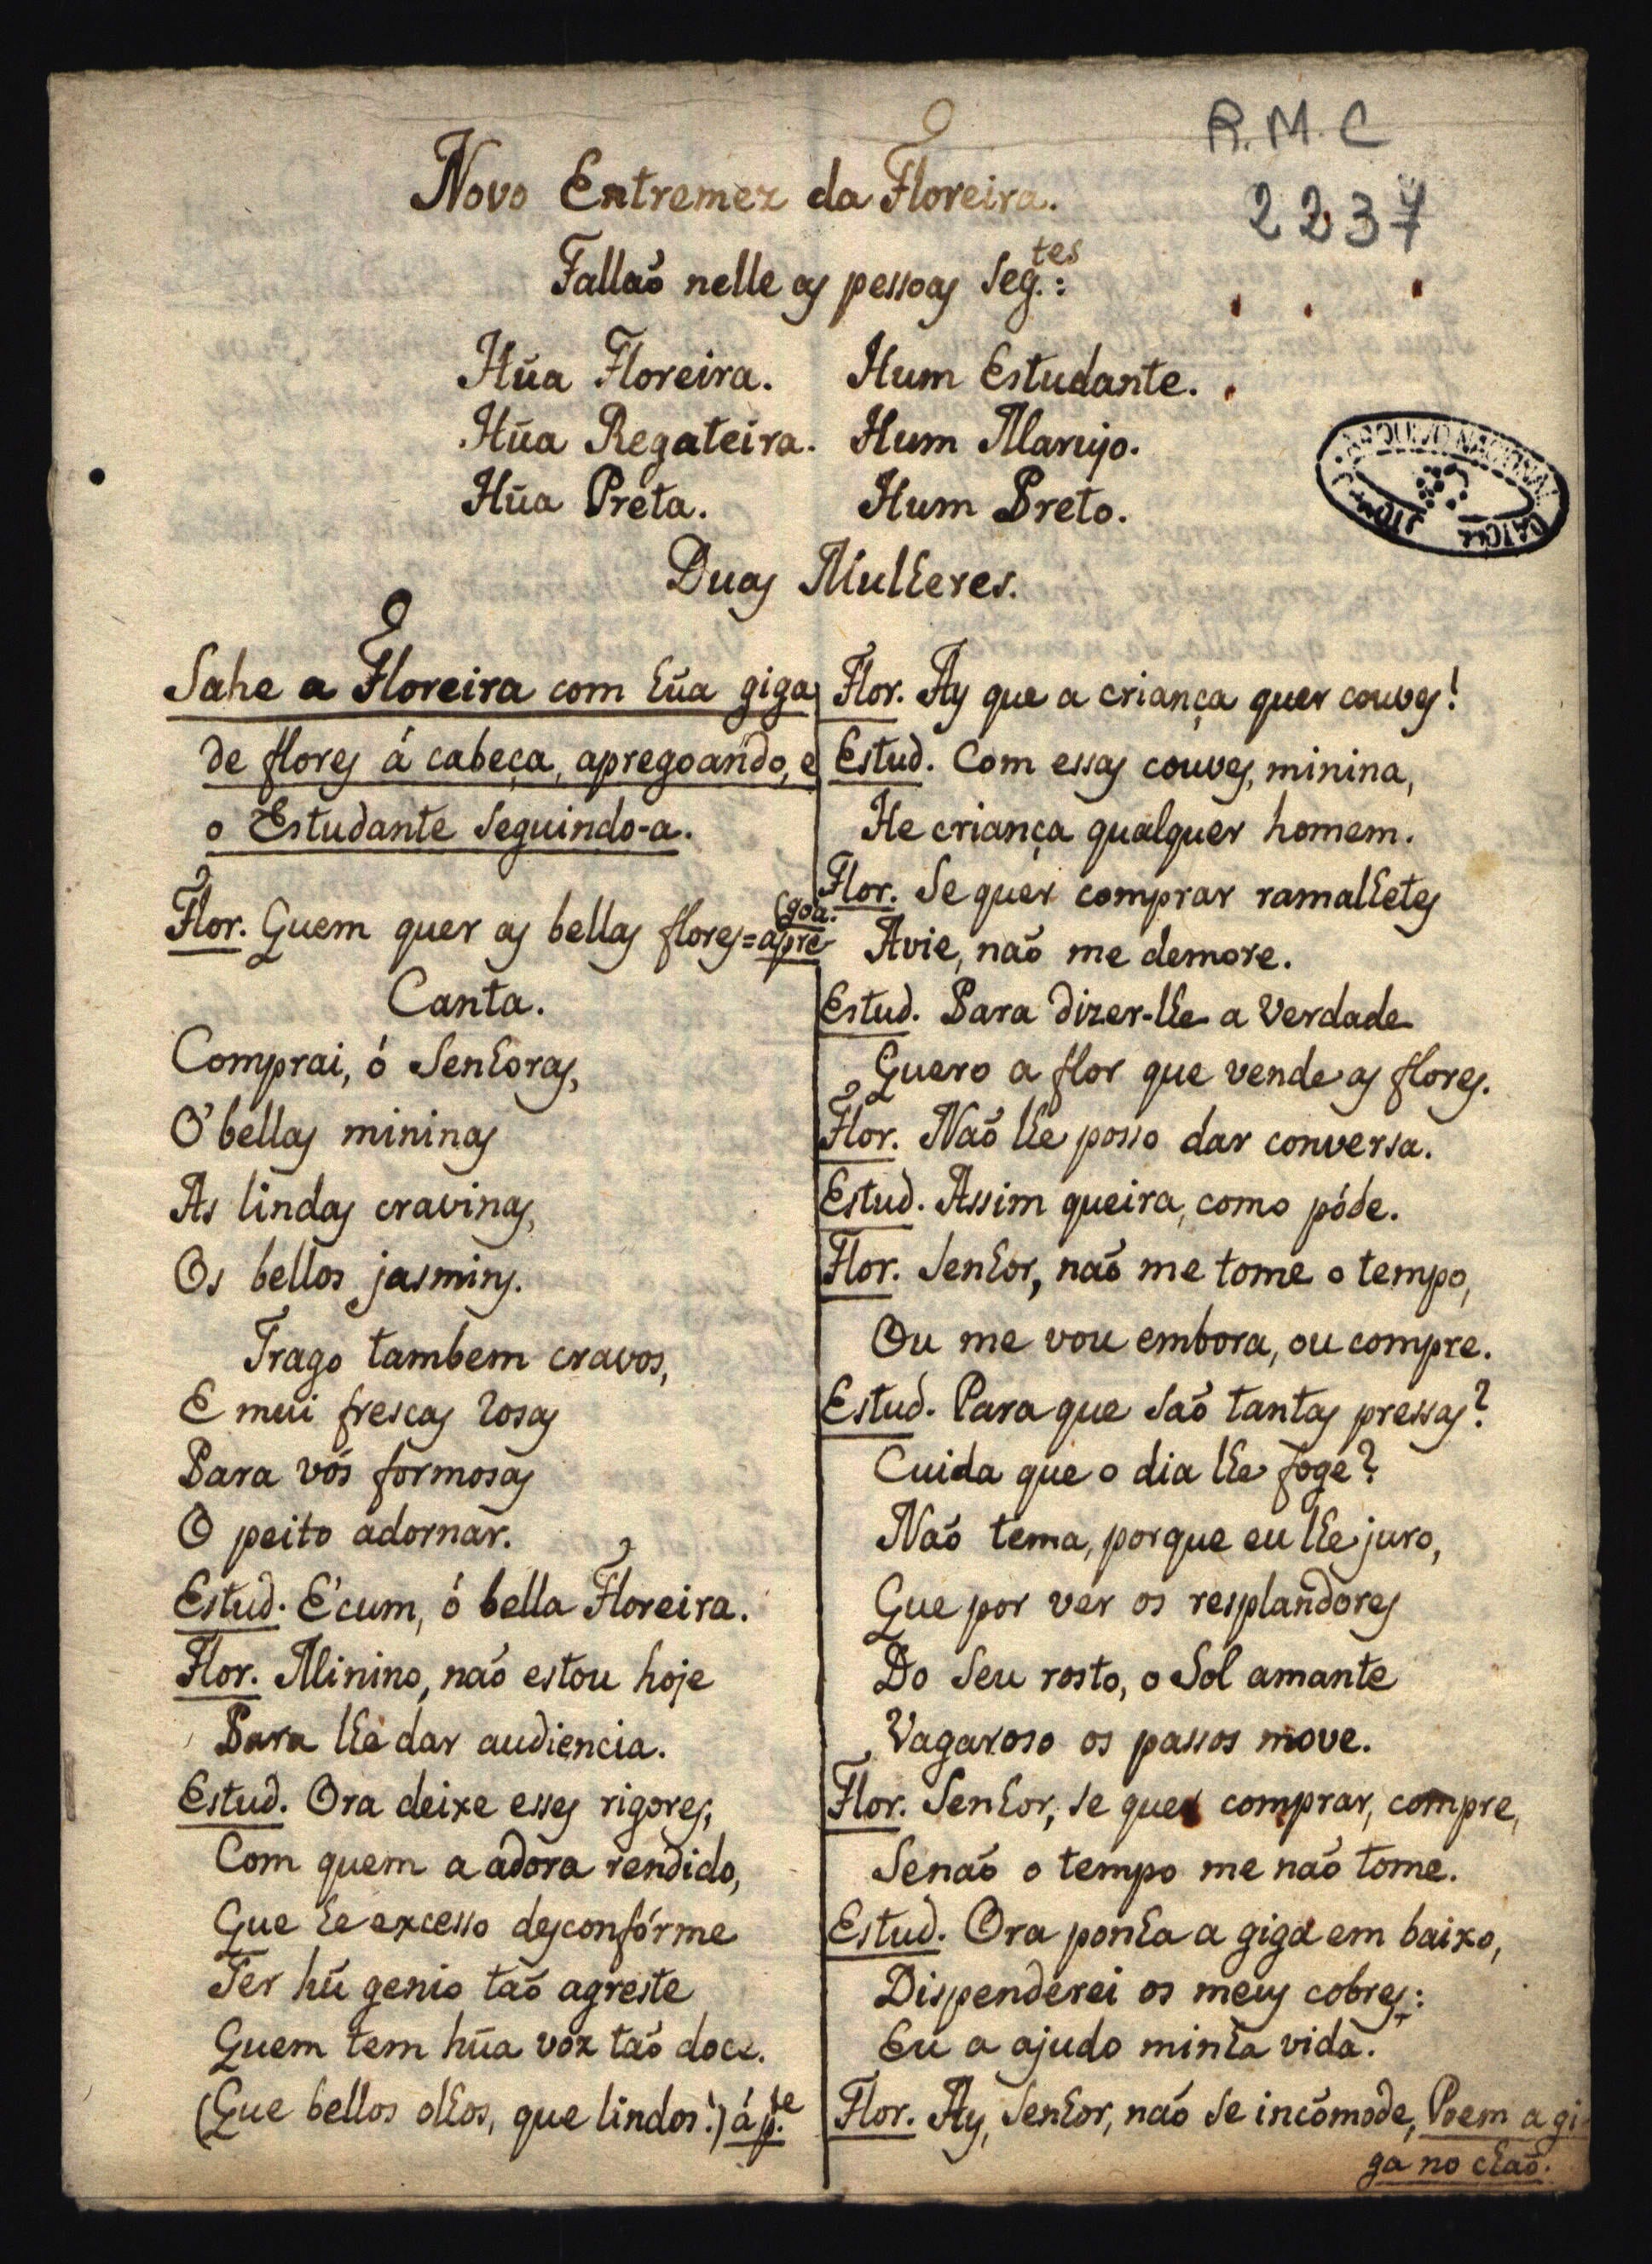 R. M. C
2237
Novo Entremez da Floreira.
Fallaõ nelle as pessoas seg.tes:
Hũa Floreira. Hum Estudante.
Hũa Regateira. Hum Marujo.
Hũa Preta. Hum Preto.
Duas Mulheres.
Sahe a Floreira com hũa giga
de flores á cabeça, apregoando, e
o Estudante seguindo-a.
Flor. Quem quer as bellas flores = apre
(goa.
Canta.
Comprai, ó Senhoras,
O' bellas mininas
As lindas cravinas,
Os bellos jasmins.
Trago tambem cravos,
E mui frescas rosas
Para vós formosas
O peito adornar.
Estud. E'cum, ó bella Floreira.
Flor. Minino, naõ estou hoje
Para lhe dar audiencia.
Estud. Ora deixe esses rigores,
Com quem a adora rendido,
Que he excesso desconfórme
Ter hũ genio taõ agreste
Quem tem hũa voz taõ doce.
(Que bellos olhos, que lindos!) á p.te
Flor. Ay que a criança quer couves!
Estud. Com essas couves, minina,
He criança qualquer homem.
Flor. Se quer comprar ramalhetes
Avie, naõ me demore.
Estud. Para dizer-lhe a verdade
Quero a flor que vende as flores.
Flor. Naõ lhe posso dar conversa.
Estud. Assim queira, como póde.
Flor. Senhor, naõ me tome o tempo,
Ou me vou embora, ou compre.
Estud. Para que saõ tantas pressas?
Cuida que o dia lhe foge?
Naõ tema, porque eu lhe juro,
Que por ver os resplandores
Do seu rosto, o Sol amante
Vagaroso os passos move.
Flor. Senhor, se quer comprar, compre,
Senaõ o tempo me naõ tome.
Estud. Ora ponha a giga em baixo,
Dispenderei os meus cobres:
Eu a ajudo minha vida.
Flor. Ay, Senhor, naõ se incómode, Poem a gi-
ga no chaõ.